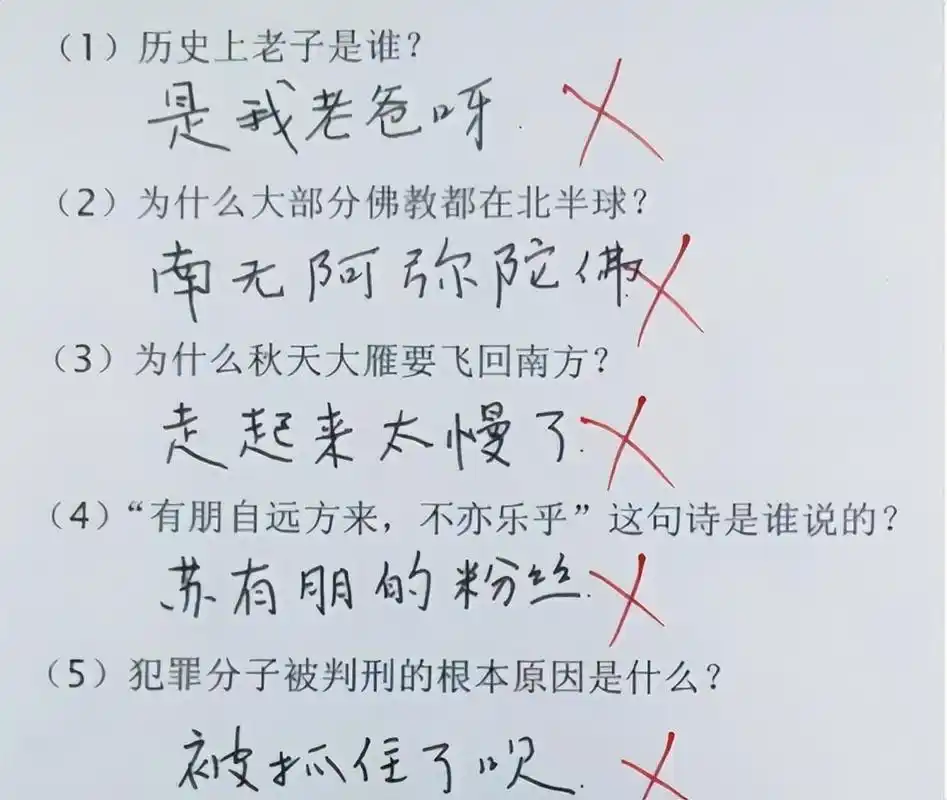 （1）历史上老子是谁？
是我老爸呀.
（2）为什么大部分佛教都在北半球？
南无阿弥陀佛.
（3）为什么秋天大雁要飞回南方？
走起来太慢了.
（4）“有朋自远方来，不亦乐乎”这句诗是谁说的？
苏有朋的粉丝.
（5）犯罪分子被判刑的根本原因是什么？
被抓住了呗.